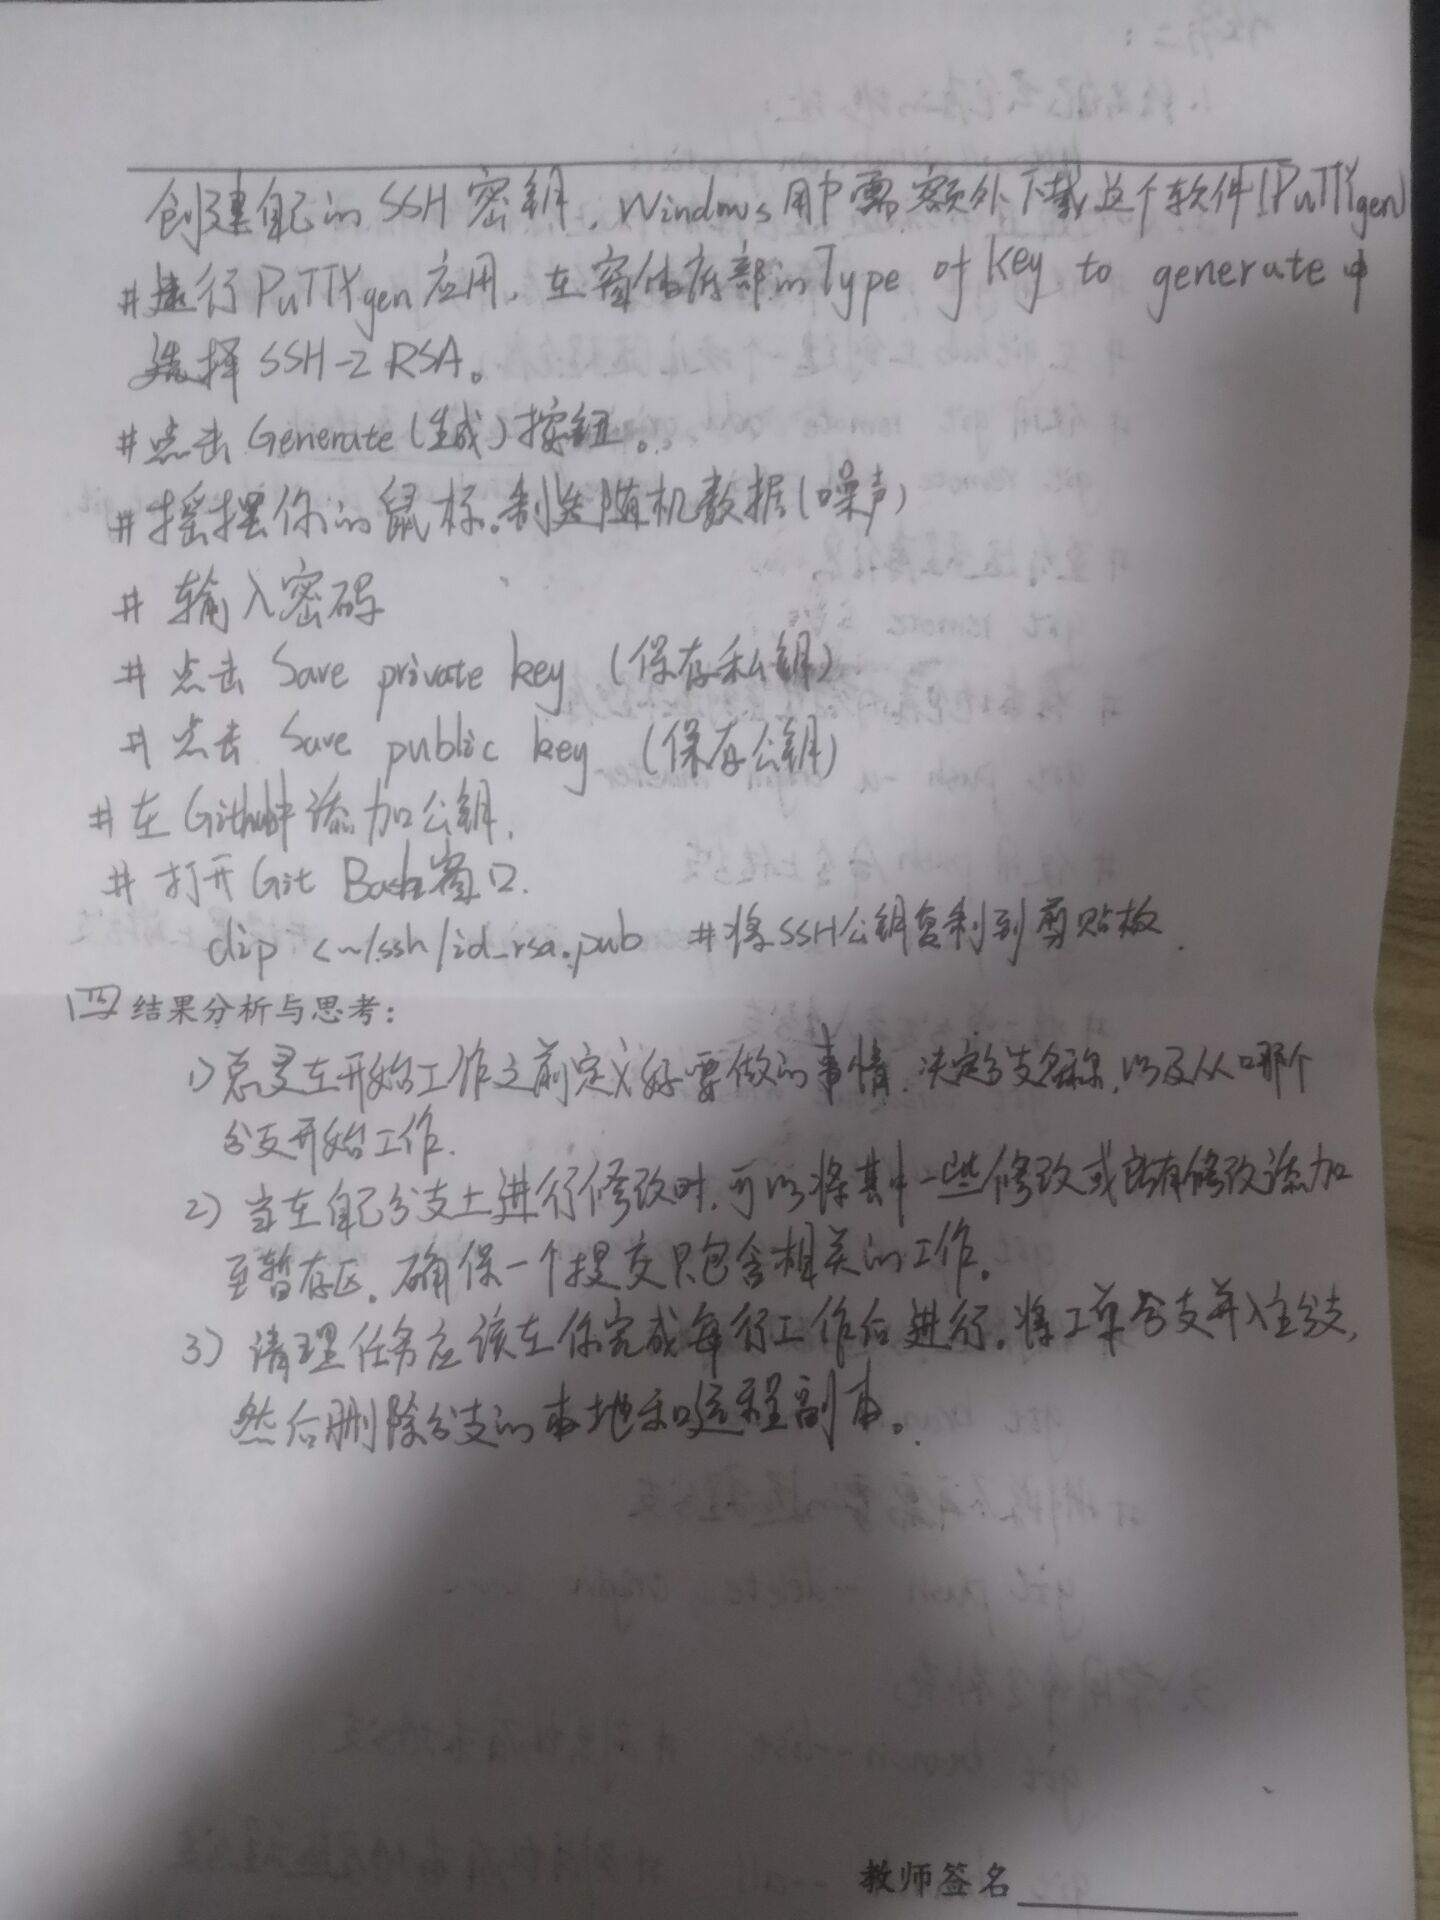 创建自己的 SSH 密钥，Windows 用户需额外下载这个软件(PuTTYgen)
#运行 PuTTYgen 应用，在窗体底部的 Type of key to generate 中
选择 SSH-2 RSA。
#点击 Generate (生成) 按钮。
#摇摆你的鼠标。制造随机数据(噪声)
# 输入密码
# 点击 Save private key (保存私钥)
# 点击 Save public key (保存公钥)
#在 Github中添加公钥.
# 打开 Git Bash窗口.
clip <~/.ssh/id_rsa.pub #将SSH公钥复制到剪贴板.
四 结果分析与思考:
1) 总是在开始工作之前定义好要做的事情.决定分支名称,以及从哪个
分支开始工作.
2) 当在自己分支上进行修改时,可以将其中一些修改或所有修改添加
至暂存区。确保一个提交只包含相关的工作。
3) 清理任务应该在你完成每行工作后进行。将工单分支并入主分支,
然后删除分支的本地和远程副本。
教师签名